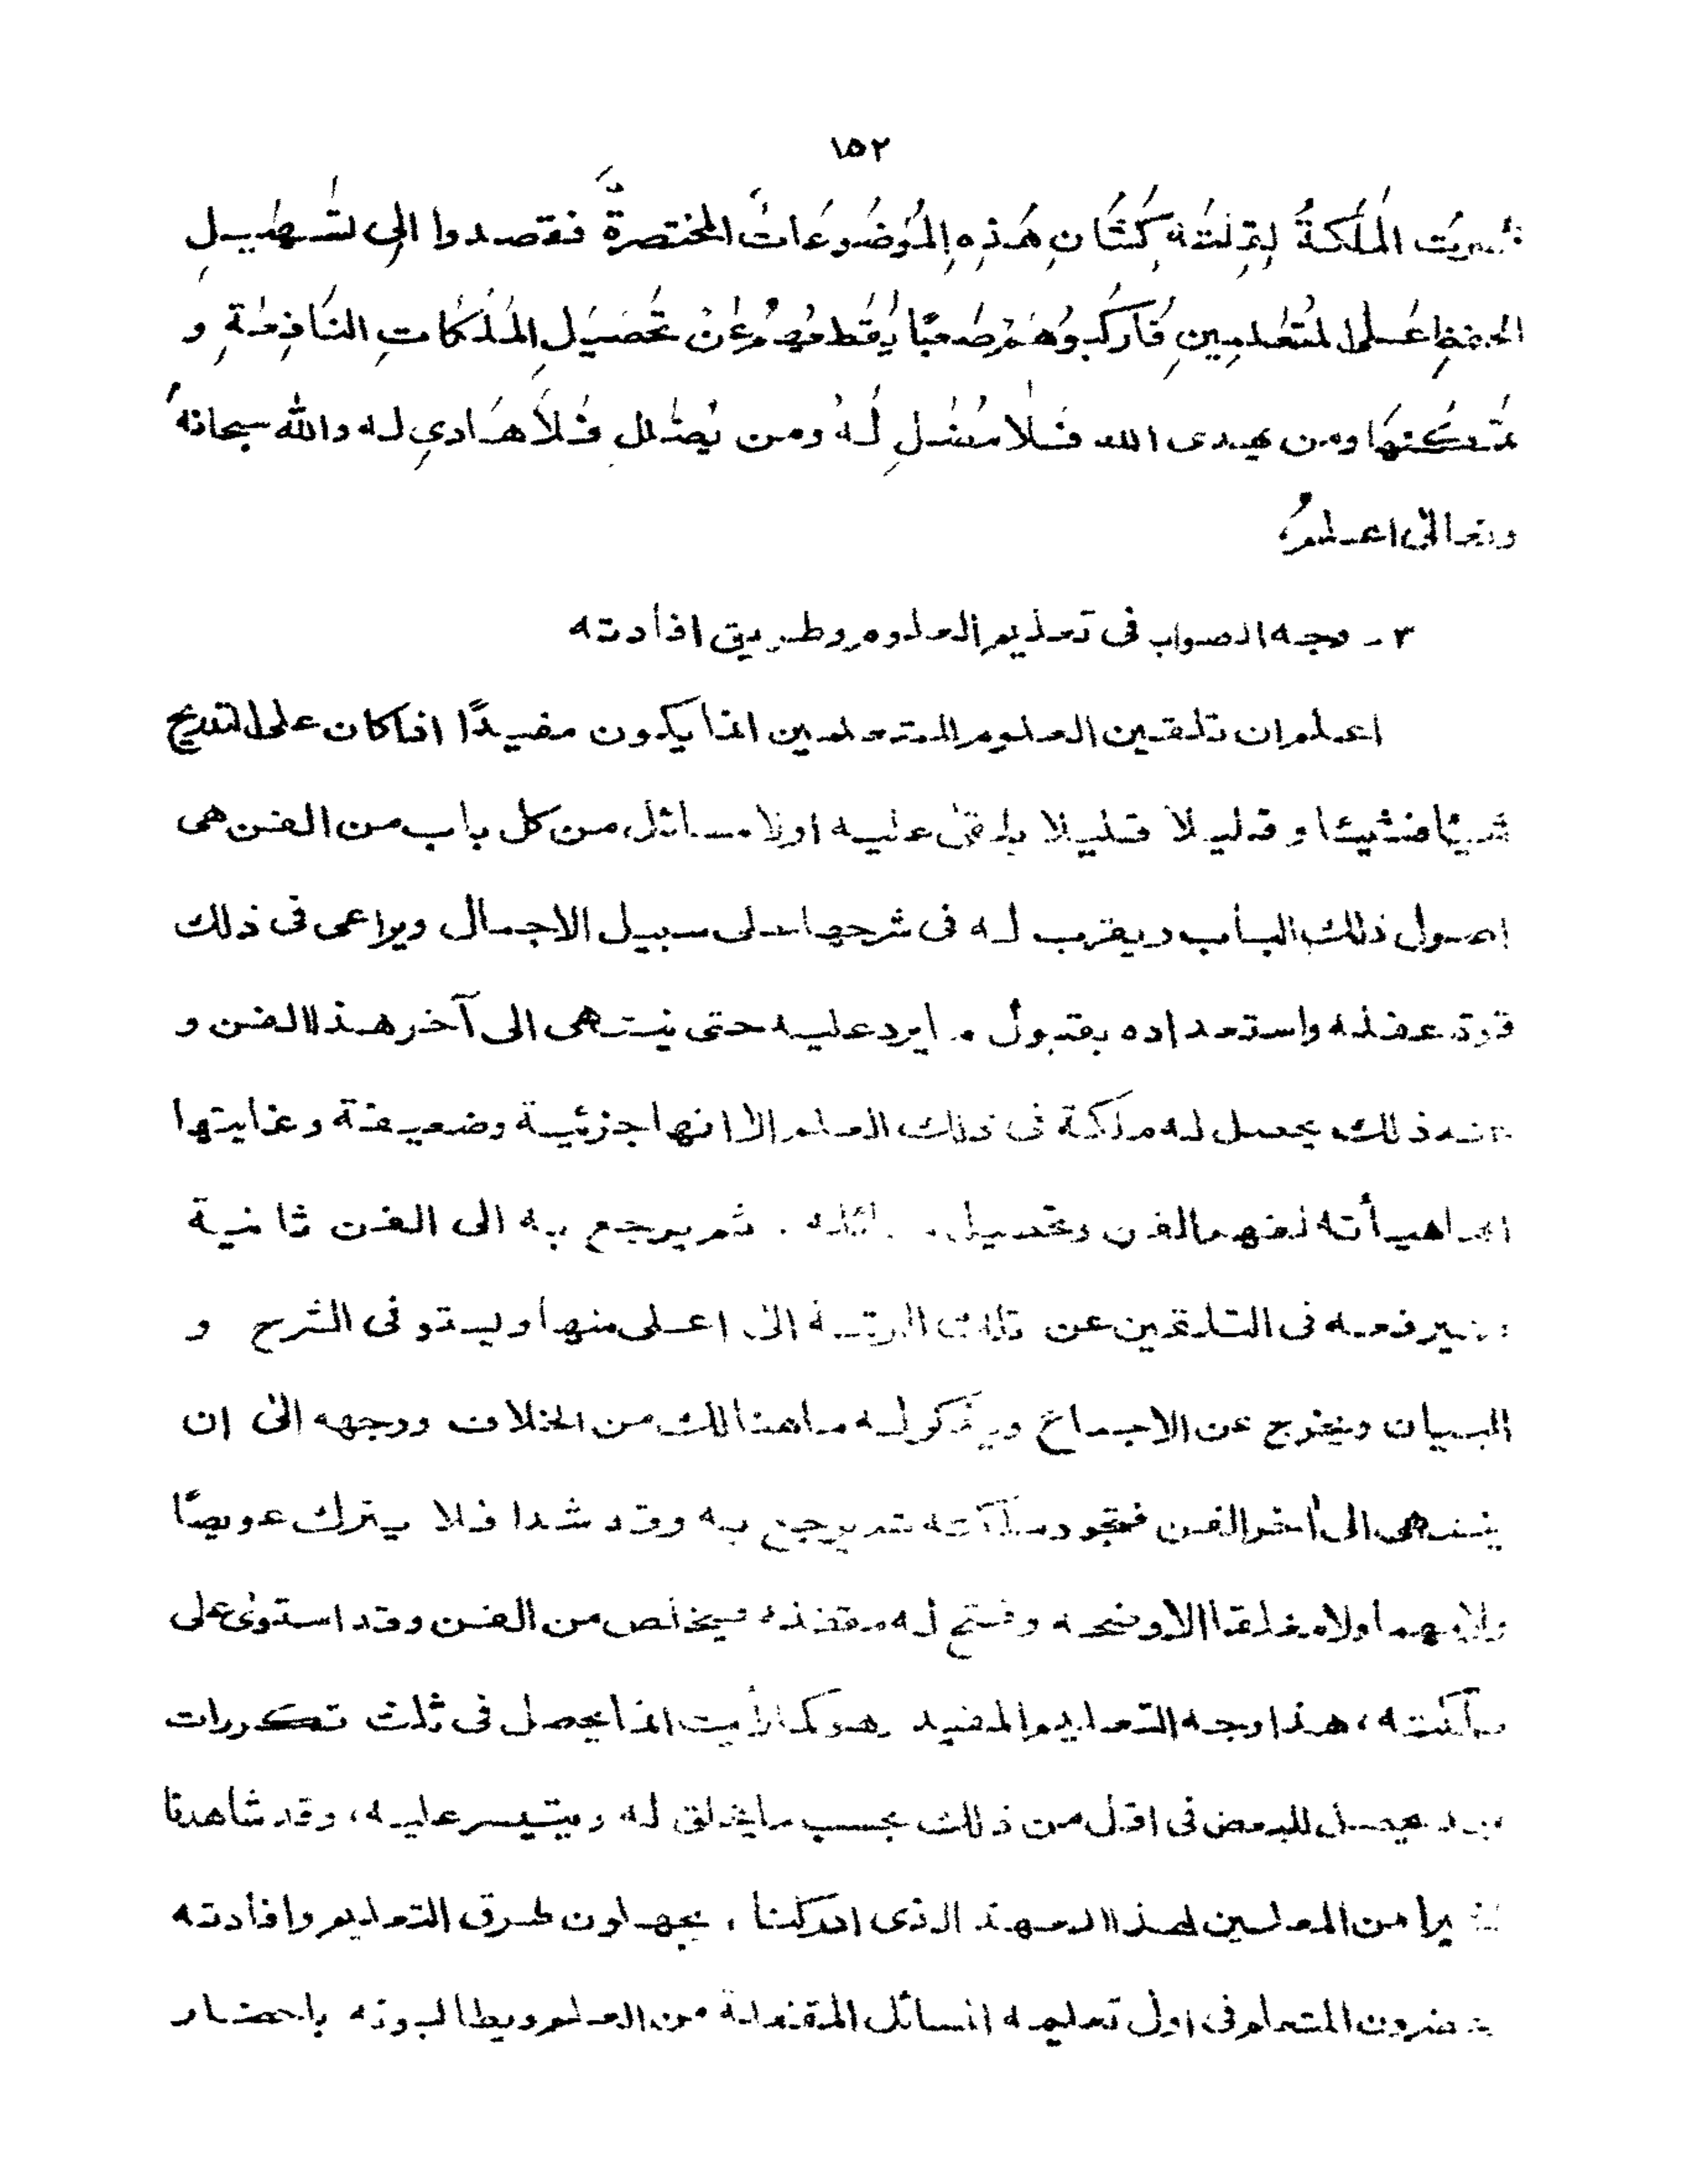 ١٥٢
الملكة لقلته كشان هذه الموضوعات المختصرة فقصدوا الى تسهيل
الحفظ على المتعلمين فاركبوهم صعبًا يقطعهم عن تحصيل الملكات النافعة و
تمكنها ومن يهدى الله فلا مضل له ومن يضلل فلا هادى له والله سبحانه
وتعالى اعلم،
٣ - وجه الصواب فى تعليم العلوم وطريق افادته
اعلم ان تلقين العلوم للمتعلمين انما يكون مفيدًا اذا كان على التدريج
شيئا فشيئا و قليلا قليلا يلقى عليه اولا مسائل من كل باب من الفن هى
اصول ذلك الباب ويقرب له فى شرحها على سبيل الاجمال ويراعى فى ذلك
قوة عقله واستعداده بقبول ما يرد عليه حتى ينتهى الى آخر هذا الفن و
عند ذلك يحصل له ملكة فى ذلك العلم الا انها جزئية وضعيفة وغايتها
انها هيأته لفهم الفن وتحصيل مسائله . ثم يرجع به الى الفن ثانية
فيرفعه فى التلقين عن تلك الرتبة الى اعلى منها ويستوفى الشرح و
البيان ويخرج عن الاجماع ويذكر له ما هنالك من الخلاف ووجهه الى ان
ينتهى الى أخر الفن فتجود ملكته ثم يرجع به وقد شدا فلا يترك عويصًا
ولا مبهما ولا مغلقا الا وضحه وفتح له مقفله فيخلص من الفن وقد استولى على
ملكته، هذا وجه التعليم المفيد وهو كما رأيت انما يحصل فى ثلث تكررات
وقد يحصل للبعض فى اقل من ذلك بحسب ما يخلق له ويتيسر عليه، وقد شاهدنا
كثيرا من المعلمين لهذا العهد الذى ادركنا، يجهلون طرق التعليم وافادته
يحضرون المتعلم فى اول تعليمه المسائل المقفلة من العلم ويطالبونه باحضار